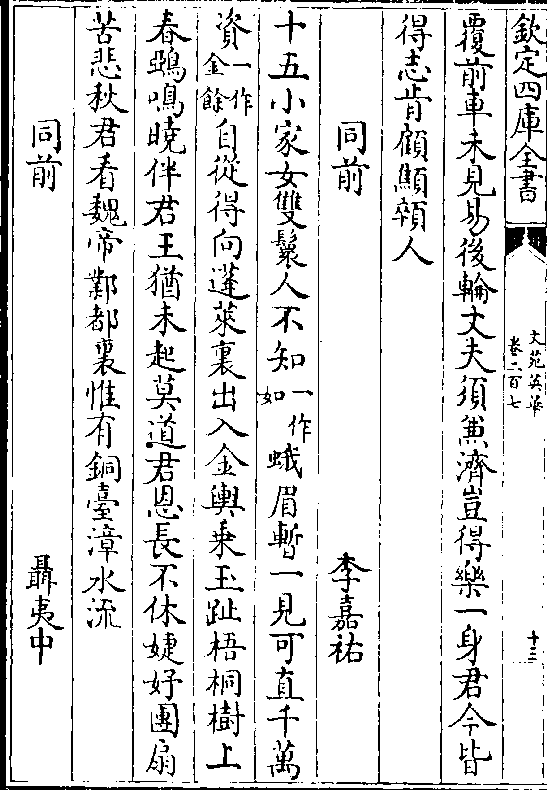 欽定四庫全書
文苑英華
卷二百七
十三
覆前車未見易後輪丈夫須兼濟豈得樂一身君今皆
得志肯顧顦顇人
同前
李嘉祐
十五小家女雙鬟人不知一作如蛾眉暫一見可直千萬
資一作金餘自從得向蓬萊裏出入金輿乗玉趾梧桐樹上
春鵶鳴曉伴君王猶未起莫道君恩長不休婕妤團扇
苦悲秋君看魏帝鄴都裏惟有銅臺漳水流
同前
聶夷中